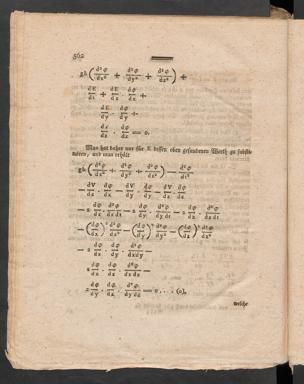 562
gh (d²φ/dx² + d²φ/dy² + d²φ/dz²) +
dE/dt + dE/dx . dφ/dx +
dE/dy . dφ/dy +
dE/dz . dφ/dz = 0.
Man hat daher nur für E dessen oben gefundenen Werth zu substi-
tuiren, und man erhält
gh (d²φ/dx² + d²φ/dy² + d²φ/dz²) — d²φ/dt²
— dV/dx . dφ/dx — dV/dy . dφ/dy — dV/dz . dφ/dz
— 2 dφ/dx . d²φ/dx dt — 2 dφ/dy . d²φ/dy dt — 2 dφ/dz . d²φ/dz dt
— (dφ/dx)² d²φ/dx² — (dφ/dy)² d²φ/dy² — (dφ/dz)² d²φ/dz²
— 2 dφ/dx . dφ/dy . d²φ/dx dy —
2 dφ/dx . dφ/dz . d²φ/dx dz —
2 dφ/dy . dφ/dz . d²φ/dy dz = 0 . . .
welche